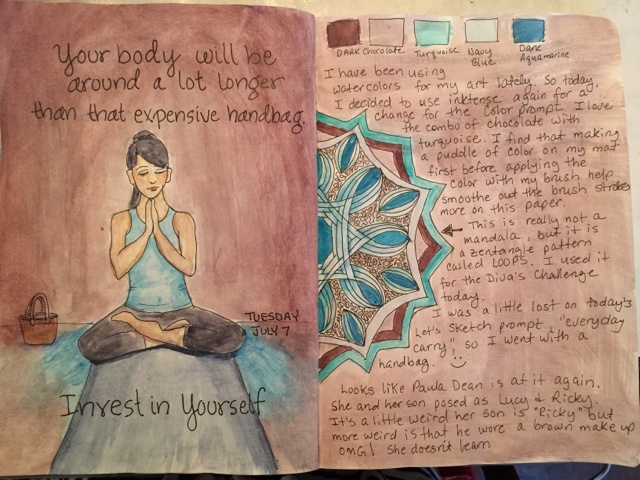 Your body will be
around a lot longer
than that expensive handbag.
TUESDAY
JULY 7
Invest in Yourself
DARK Chocolate
Turquoise
Navy
Blue
Dark
Aquamarine
I have been using
watercolors for my art lately. So today,
I decided to use inktense again for a
change for the color prompt. I love
the combo of chocolate with
turquoise. I find that making
a puddle of color on my mat
first before applying the
color with my brush help
smoothe out the brush strokes
more on this paper.
This is really not a
mandala, but it is
a zentangle pattern
called LOOPS. I used it
for the Diva's Challenge
today.
I was a little lost on today's
Let's Sketch prompt, "everyday
carry", so I went with a
handbag. :)
Looks like Paula Dean is at it again.
She and her son posed as Lucy & Ricky.
It's a little weird her son is "Ricky" but
more weird is that he wore a brown make up
OMG! She doesn't learn